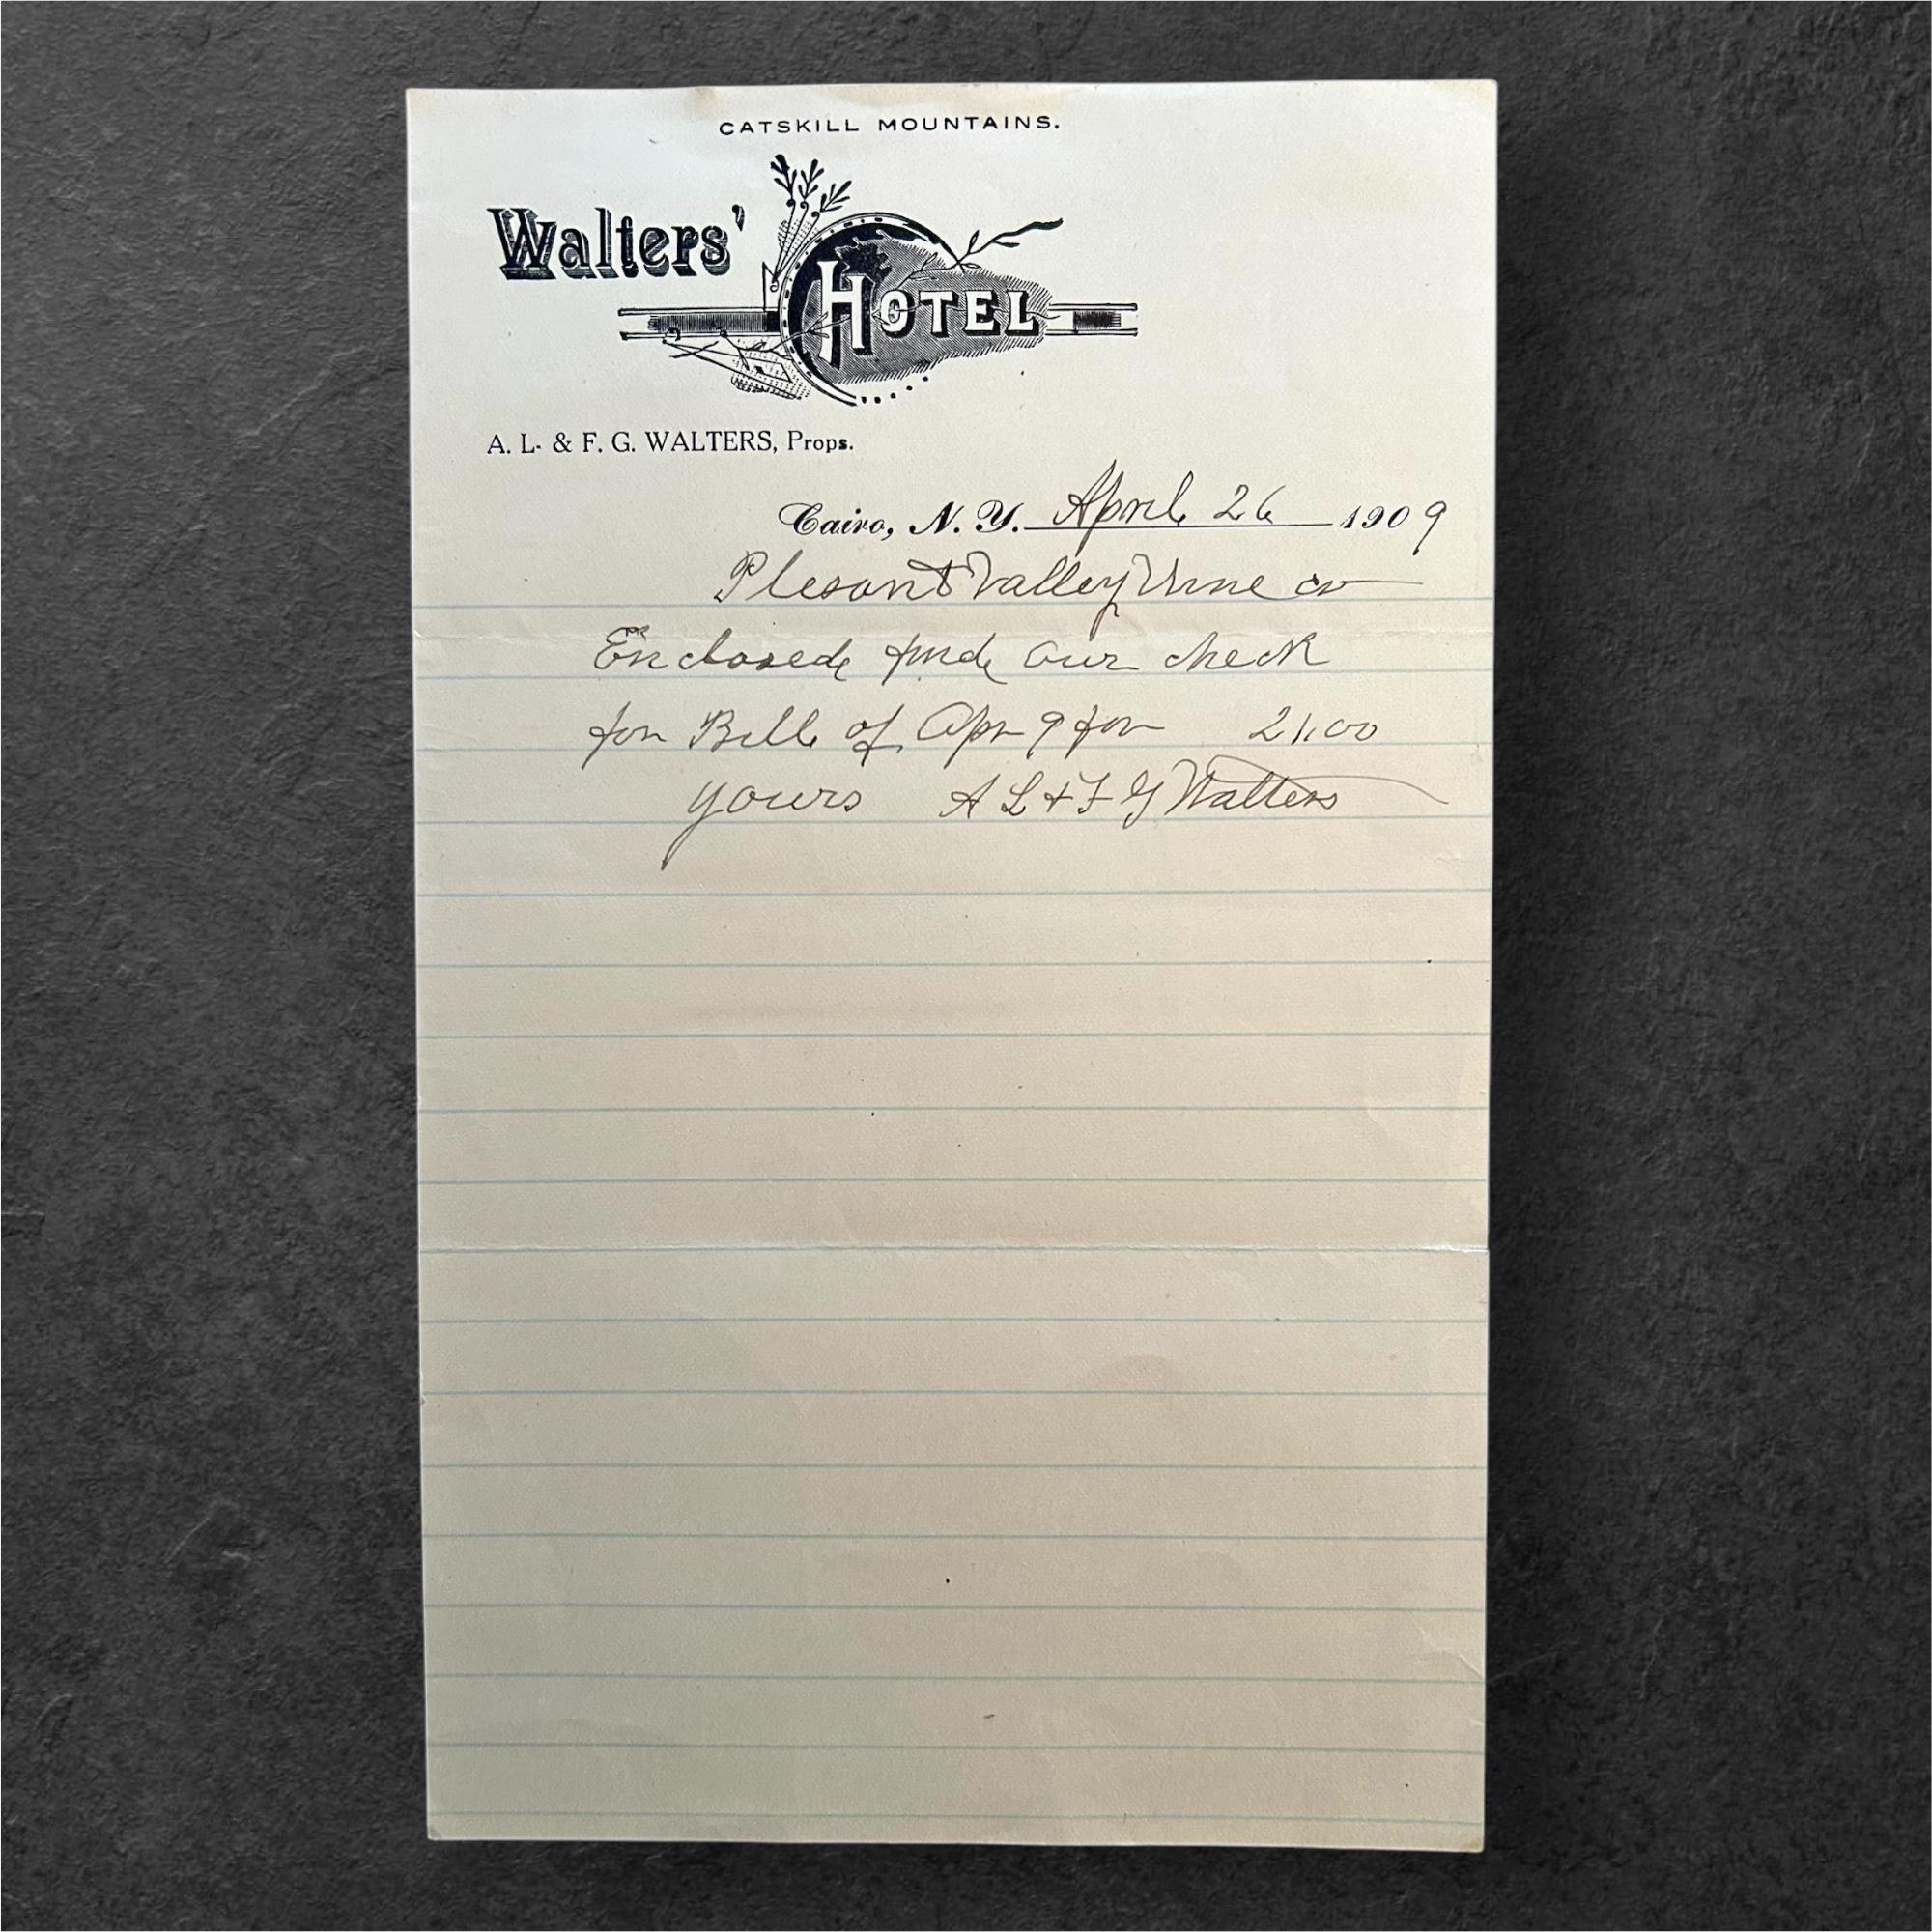 CATSKILL MOUNTAINS.
Walters'
HOTEL
A. L. & F. G. WALTERS, Props.
Cairo, N. Y. April 26 1909
Plesant Valley Wine co
Enclosed find our check
for Bill of Apr 9 for 21.00
yours A L & F G Walters